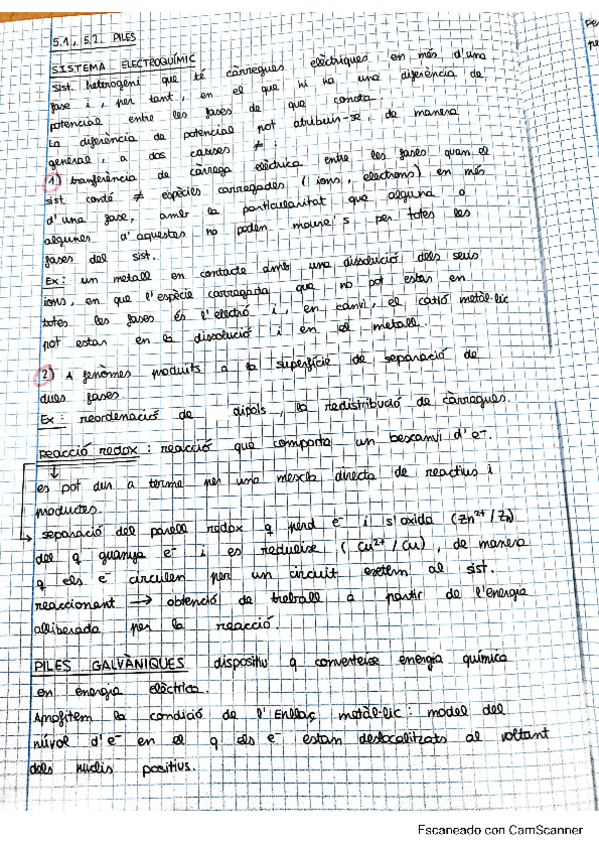 5.1, 5.2. PILES
SISTEMA ELECTROQUÍMIC
Sist. heterogeni que té càrregues elèctriques en més d'una
fase i, per tant, en el que hi ha una diferència de
potencial entre les fases de que consta.
La diferència de potencial pot atribuir-se, de manera
general, a dos causes ≠ :
1) transferència de càrrega elèctrica entre les fases quan el
sist. conté ≠ espècies carregades (ions, electrons) en més
d'una fase, amb la particularitat que alguna o
algunes d'aquestes no poden moure's per totes les
fases del sist.
Ex: un metall en contacte amb una dissolució dels seus
ions, en que l'espècie carregada que no pot estar en
totes les fases és l'electró i, en canvi, el catió metàl·lic
pot estar en la dissolució i en el metall.
2) A fenòmens produïts a la superfície de separació de
dues fases.
Ex: reordenació de dipols, la redistribució de càrregues.
Reacció redox: reacció que comporta un bescanvi d'e-.
es pot dur a terme per una mescla directa de reactius i
productes.
separació del parell redox q perd e- i s'oxida (Zn2+/Zn)
del q guanya e- i es redueix (Cu2+/Cu), de manera
q els e- circulen per un circuit extern al sist.
reaccionant → obtenció de treball a partir de l'energia
alliberada per la reacció.
PILES GALVÀNIQUES dispositiu q converteix energia química
en energia elèctrica.
la condició de l'Enllaç metàl·lic: model del
núvol d'e- en el q els e- estan deslocalitzats al voltant
dels nuclis positius.
Escaneado con CamScanner